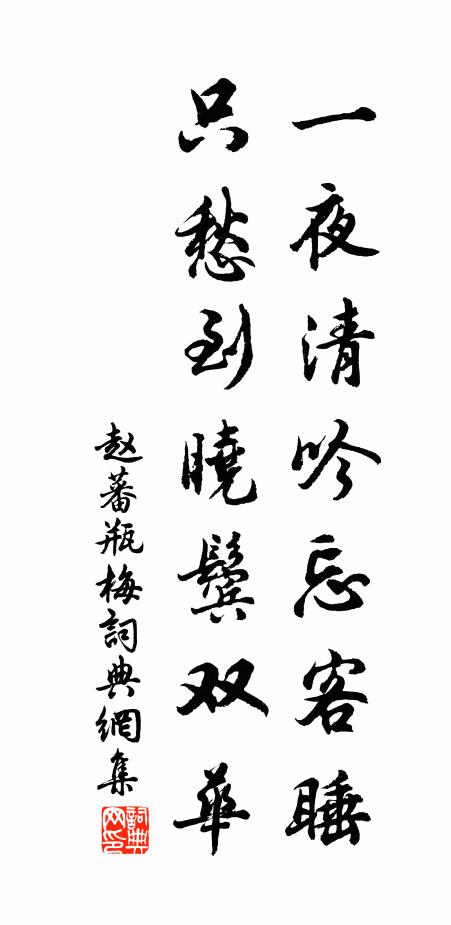 一夜清吟忘客睡
只愁到曉鬓双華
赵蕃瓶梅詞典網集
詞典网印